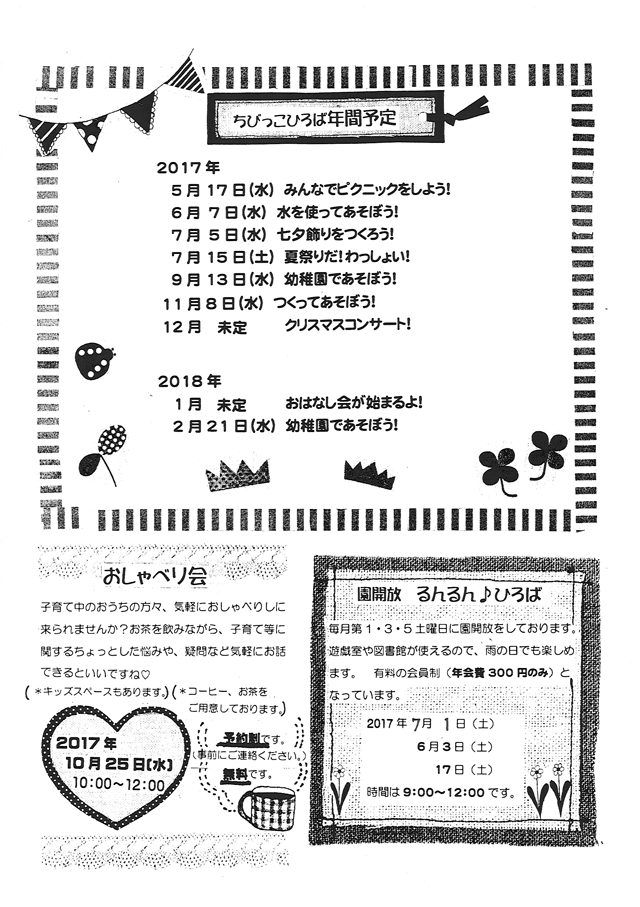 ちびっこひろば年間予定
2017年
5月17日(水) みんなでピクニックをしよう!
6月 7日(水) 水を使ってあそぼう!
7月 5日(水) 七夕飾りをつくろう!
7月15日(土) 夏祭りだ!わっしょい!
9月13日(水) 幼稚園であそぼう!
11月8日(水) つくってあそぼう!
12月 未定 クリスマスコンサート!
2018年
1月 未定 おはなし会が始まるよ!
2月21日(水) 幼稚園であそぼう!
おしゃべり会
子育て中のおうちの方々、気軽におしゃべりしに
来られませんか?お茶を飲みながら、子育て等に
関するちょっとした悩みや、疑問など気軽にお話
できるといいですね♡
(*キッズスペースもあります。)(*コーヒー、お茶を
ご用意しております。)
2017年
10月25日(水)
10:00~12:00
予約制です。
(事前にご連絡ください。)
無料です。
園開放 るんるん♪ひろば
毎月第1・3・5土曜日に園開放をしております。
遊戯室や図書館が使えるので、雨の日でも楽しめ
ます。 有料の会員制(年会費300円のみ)と
なっています。
2017年 7月 1日(土)
6月3日(土)
17日(土)
時間は9:00~12:00です。